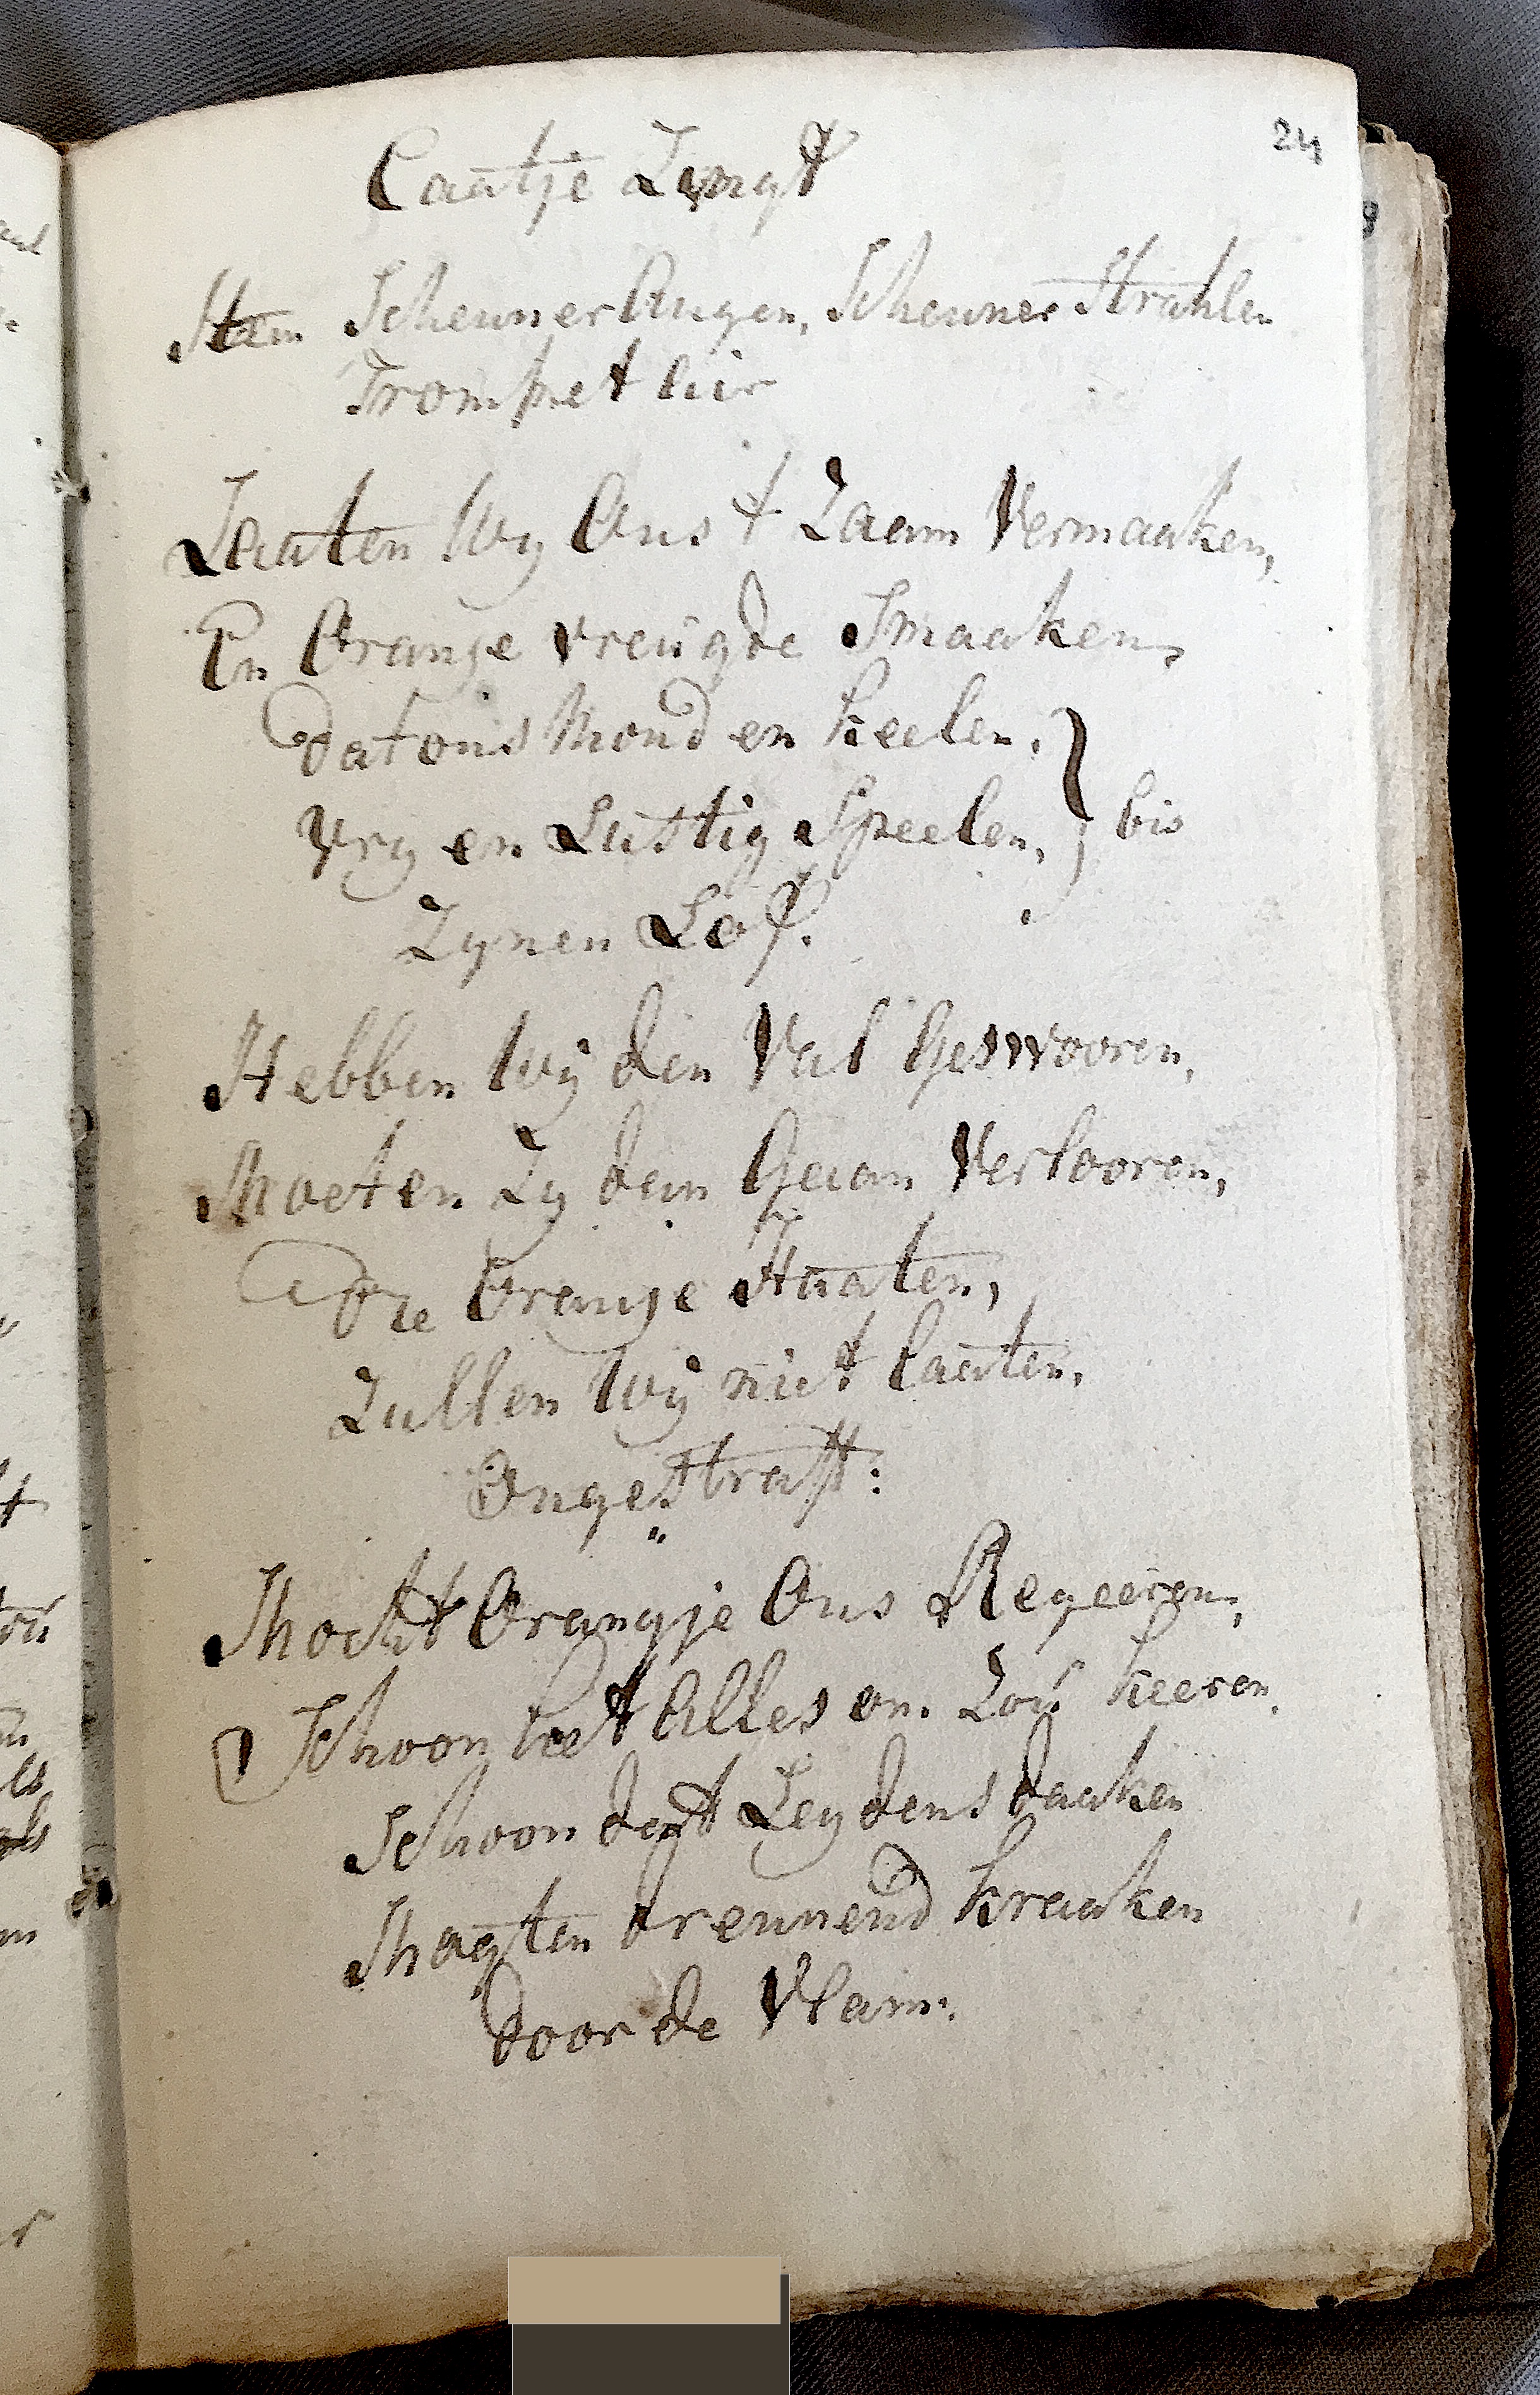 24
Caatje Zingt
Stem Scheuner Augen, Scheuner Strahlen
Trompet lier
Laaten Wy Ons t Zaam Vermaaken,
En Oranje vreugde Smaaken,
Dat ons Mond en keelen,
Vry en Lustig Speelen, } bis
Zynen Lof.
Hebben Wij den Val Geswooren,
Moeten Zy dan Gaan Verlooren,
Die Oranje Haaten,
Zullen Wij niet laaten,
Ongestraft:
Mocht Orangje Ons Regeeren,
Schoon het Alles om Zou keeren,
Schoon dat Leydens daaken
Magten brennend kraaken
door de Vlam.